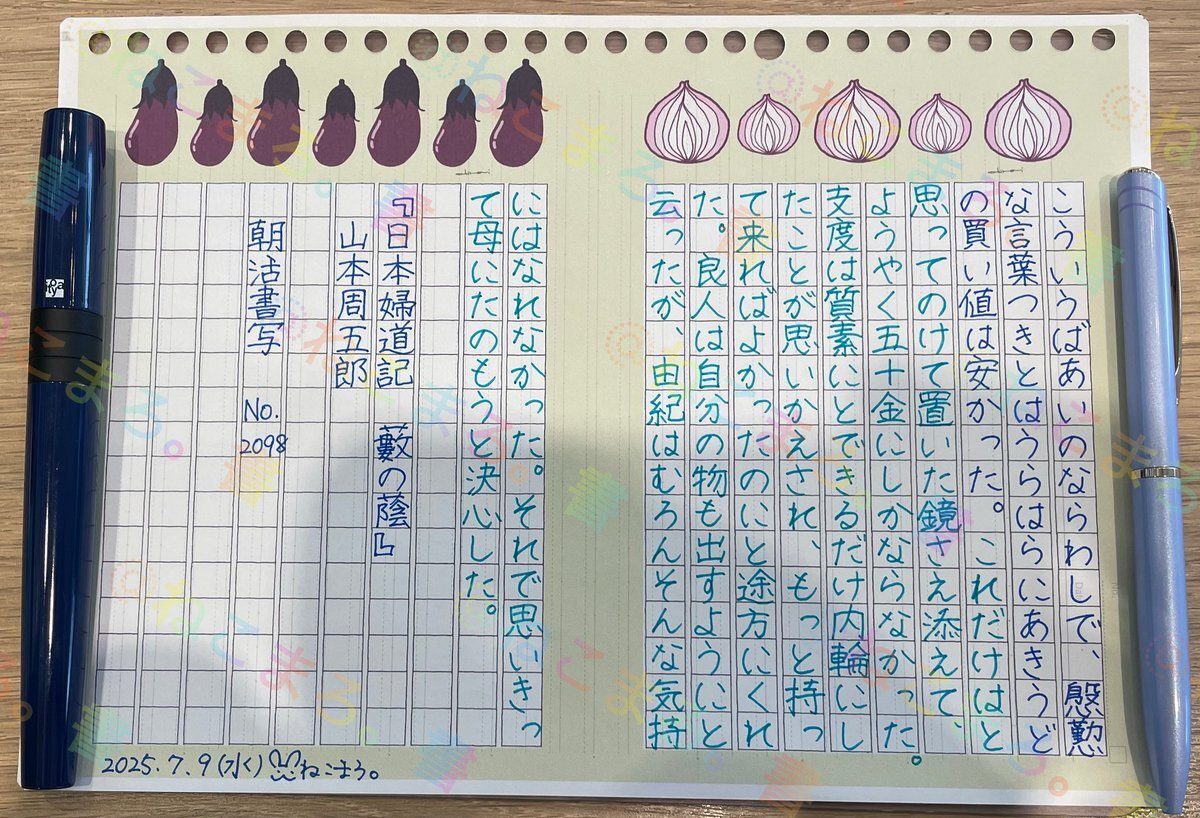 こういうばあいのならわしで、慇懃
な言葉つきとはうらはらにあきうど
の買い値は安かった。これだけはと
思ってのけて置いた鏡さえ添えて、
ようやく五十金にしかならなかった。
支度は質素にとできるだけ内輪にし
たことが思いかえされ、もっと持っ
て来ればよかったのにと途方にくれ
た。良人は自分の物も出すようにと
云ったが、由紀はむろんそんな気持
にはなれなかった。それで思いきっ
て母にたのもうと決心した。
『日本婦道記 藪の蔭』
山本周五郎
朝活書写 No. 2098
2025.7.9(水) ねこまろ。
@ねこまろ。書